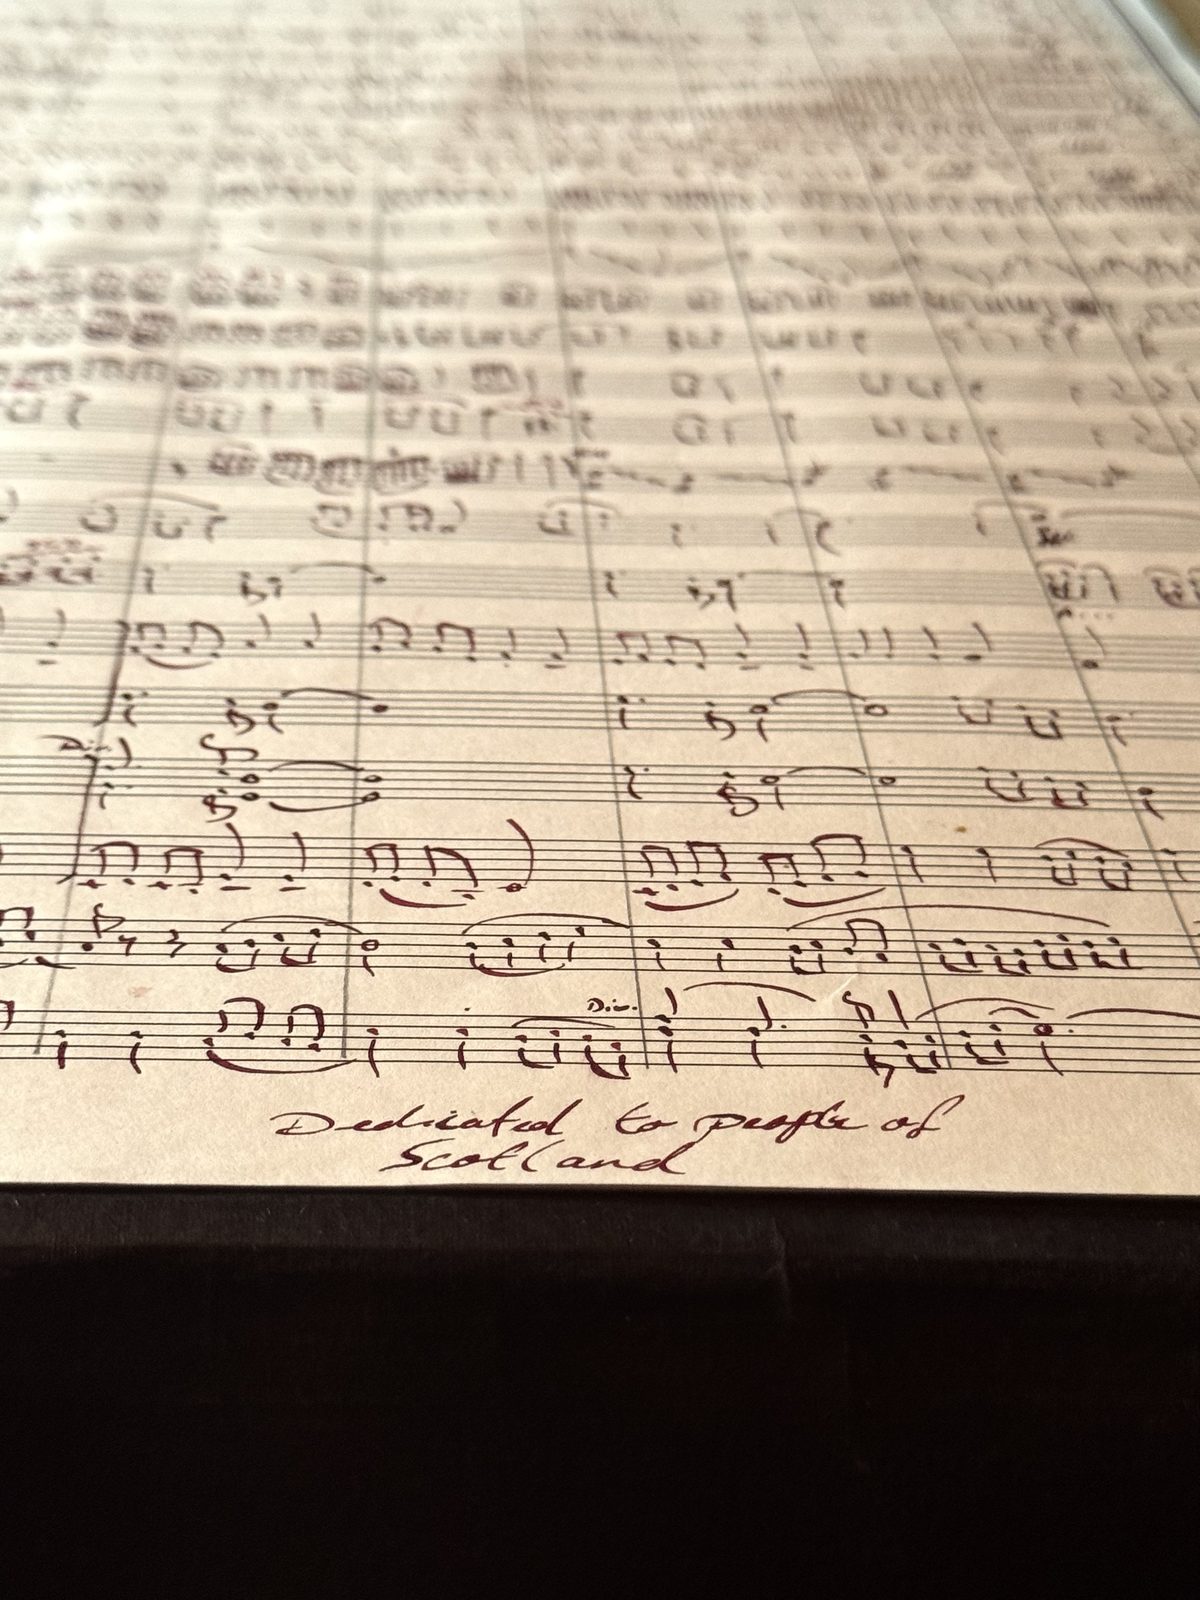 Div.
Div.
Dedicated to people of
Scotland